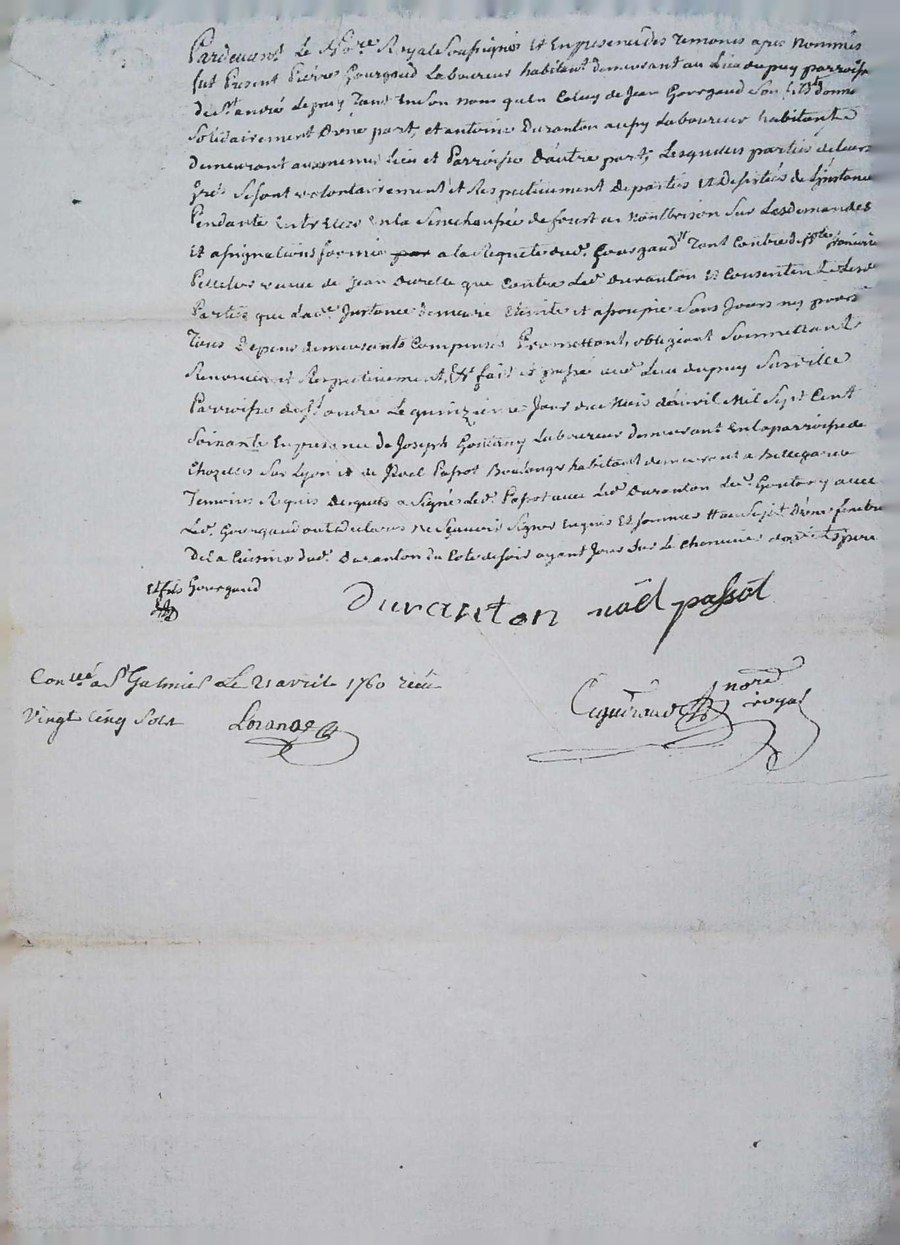 Pardevant Le No.re Royal Soussigné Et En presence des Temoins apres Nommés
fut Present Pierre Gourgaud Laboureur habitant demeurant au Lieu du puy parroisse
de St andré Le puy Tant En Son nom qu'en Celuy de Jean Gourgaud Son fils donne
Solidairement D'une part, et antoine Duranton aussy Laboureur habitant
Demeurant aux memes Lieu et Parroisse D'autre part, Lesquelles parties de Leurs
gres Se sont volontairement et Respectivement departies et Desistées de L'instance
Pendante Entre Elles En la Senechaussée de fourest a Montbrison Sur Les demandes
Et assignations formées a la Requete dud. Gourgaud Tant Contre
Pelletier veuve de Jean Durelle que Contre Led. Duranton Et Consentent Lesd.
Parties que lad. Instance demeure Eteinte et assoupie Sans Jours ny poursuite
Tous Depens demeurants Compensés Promettant, obligeant Soumettant
Renoncent Respectivement, Et fait et passé aud. Lieu du puy
Parroisse de St andré Le quinzieme Jour du Mois d'avril Mil Sept Cent
Soixante En presence de Joseph Laboureur demeurant En la parroisse de
Chazelles Sur Lyon et de Noel Passot Boulanger habitant demeurant a Bellegarde
Temoins Requis Desquels a Signé Led. Passot avec Led. Duranton Led. avec
Led. Gourgaud ont Declarés ne Sçavoir Signer Enquis Et Sommés
De La Cuisine dud. Duranton du Coté de Soir ayant Jour Sur Le Chemin
Et fils Gourgaud
Duranton noël passot
Con.llé a St Galmier Le 21 avril 1760 recu
Vingt Cinq Sols
nore
royal